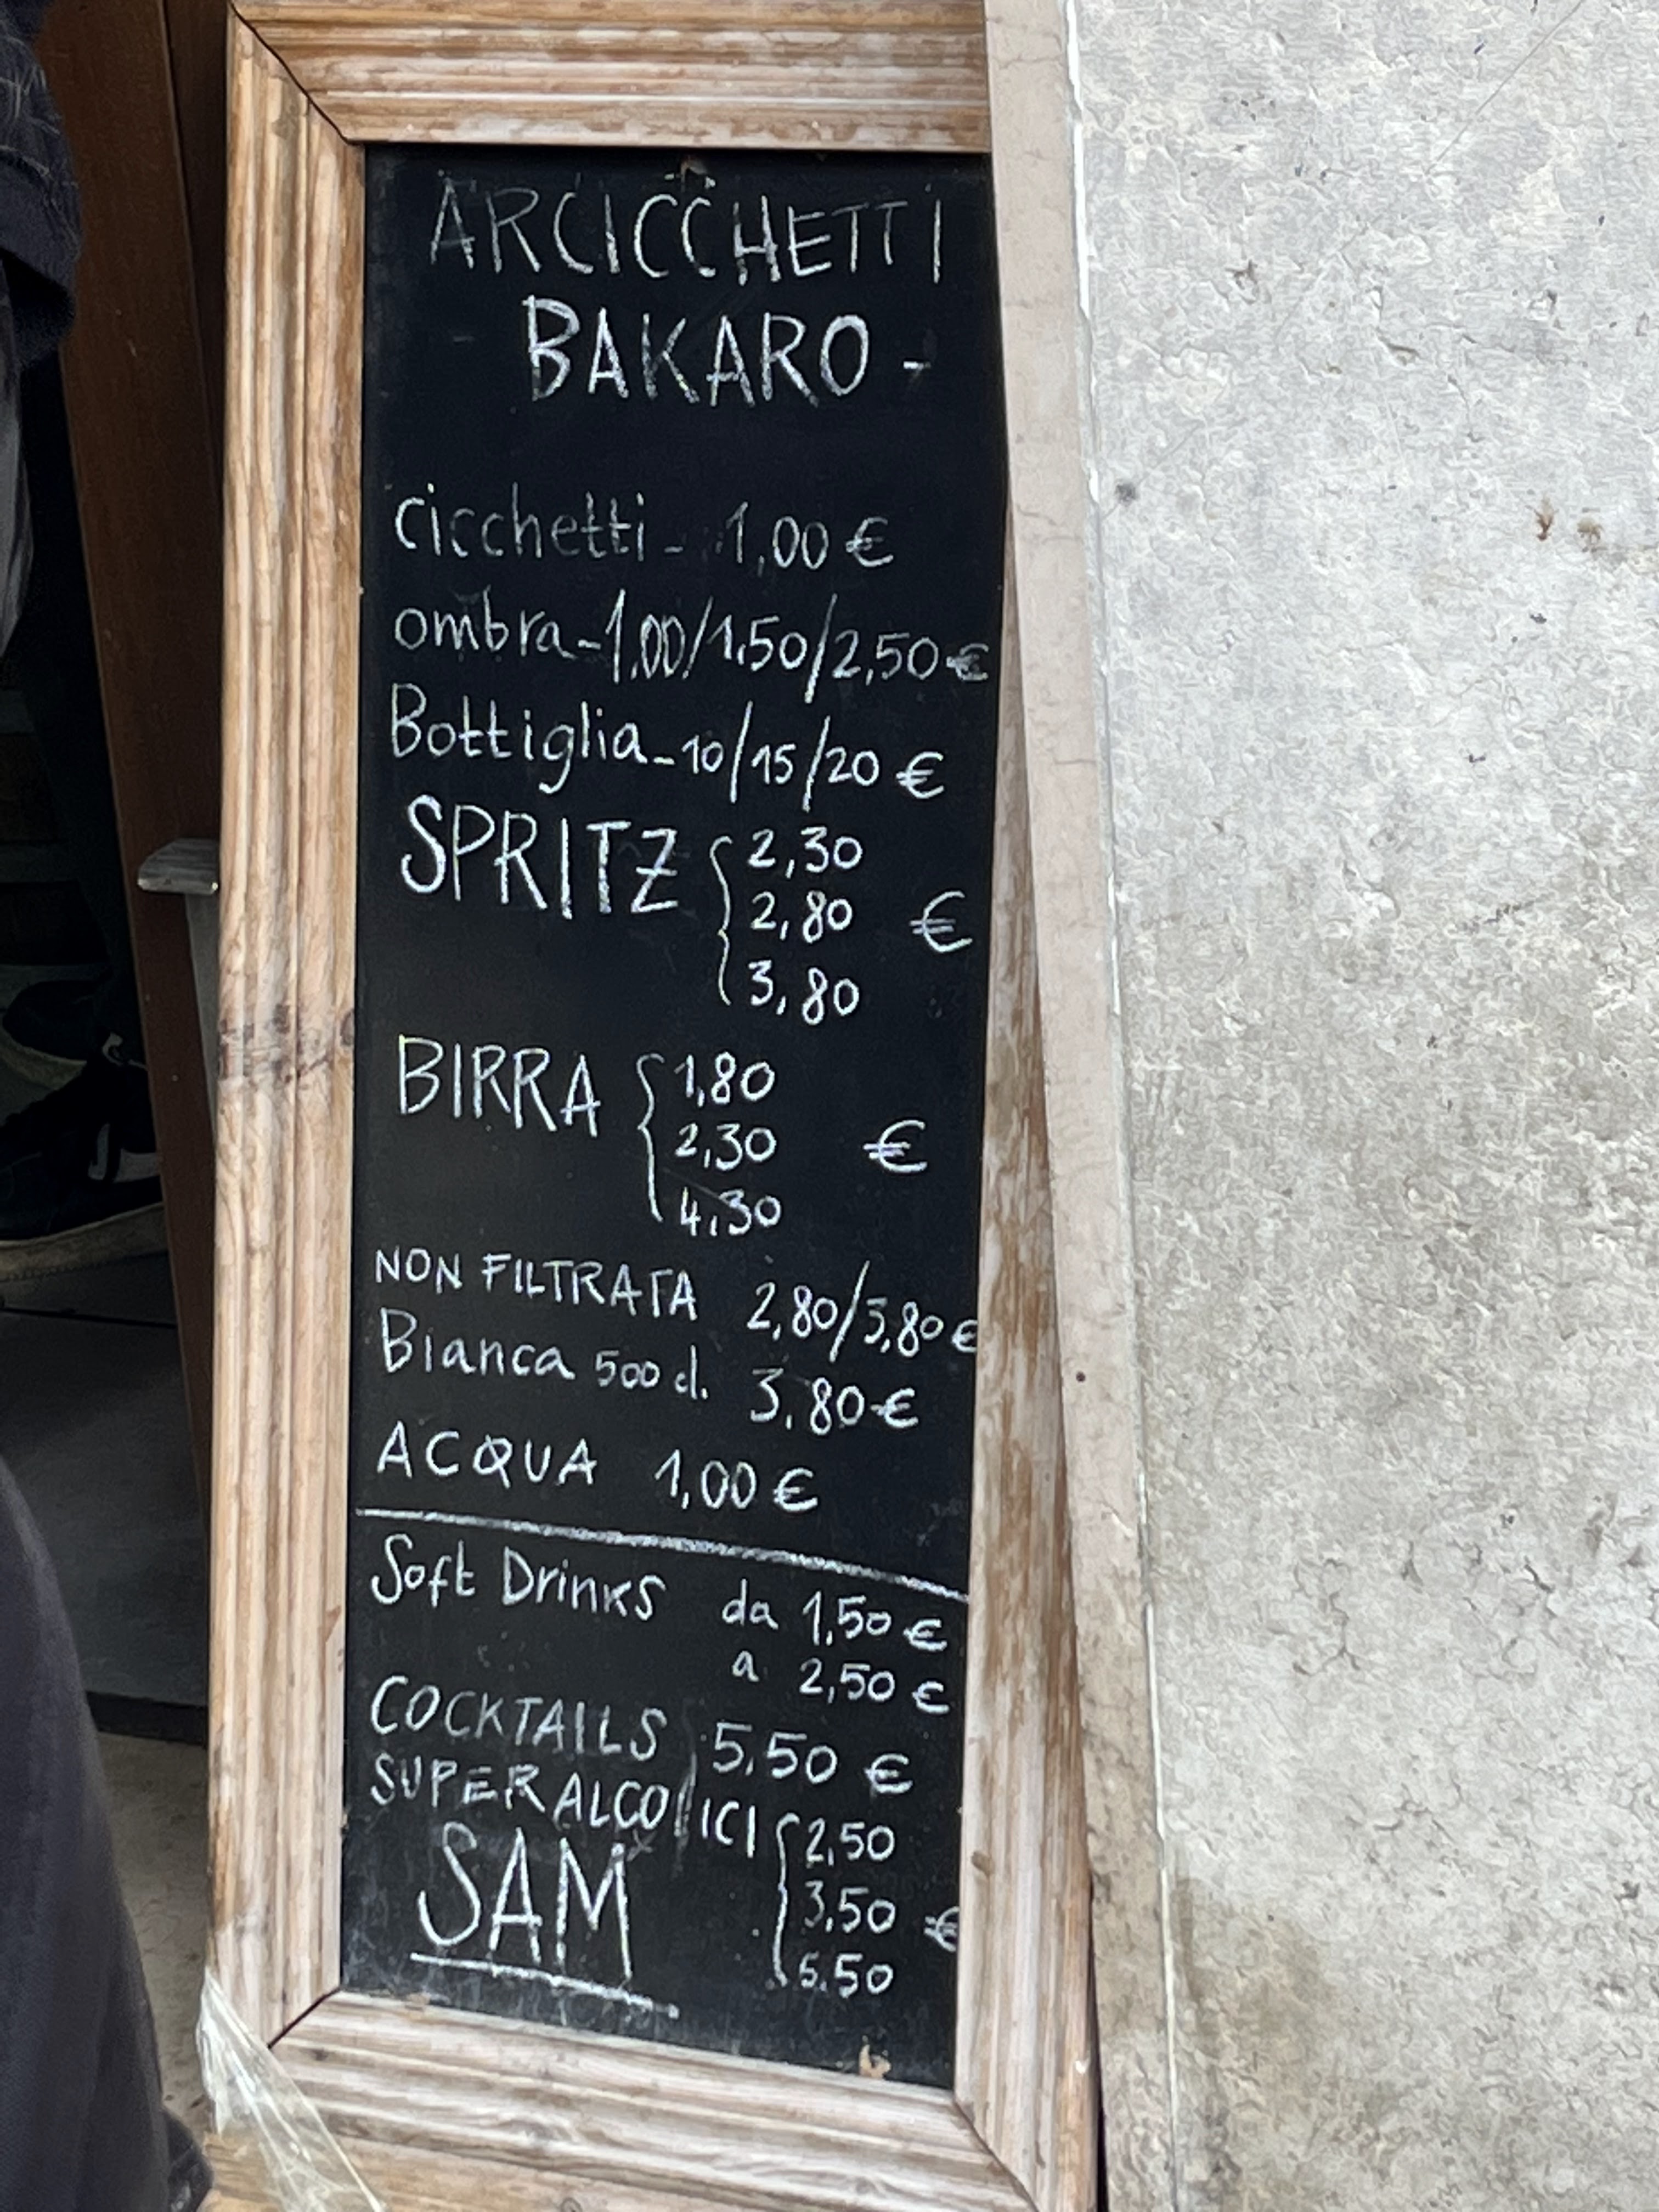 ARCICCHETTI
BAKARO -
cicchetti - 1,00 €
ombra - 1,00/1,50/2,50 €
Bottiglia - 10/15/20 €
SPRITZ { 2,30
2,80 €
3,80
BIRRA { 1,80
2,30 €
4,30
NON FILTRATA 2,80/3,80 €
Bianca 500 cl. 3,80 €
ACQUA 1,00 €
Soft Drinks da 1,50 €
a 2,50 €
COCKTAILS 5,50 €
SUPERALCOLICI { 2,50
SAM 3,50 €
5.50